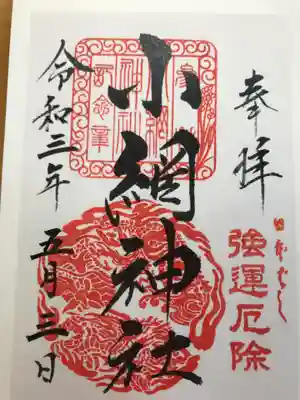 奉拝
日本ばし
強運厄除
小網神社
令和三年 五月三日